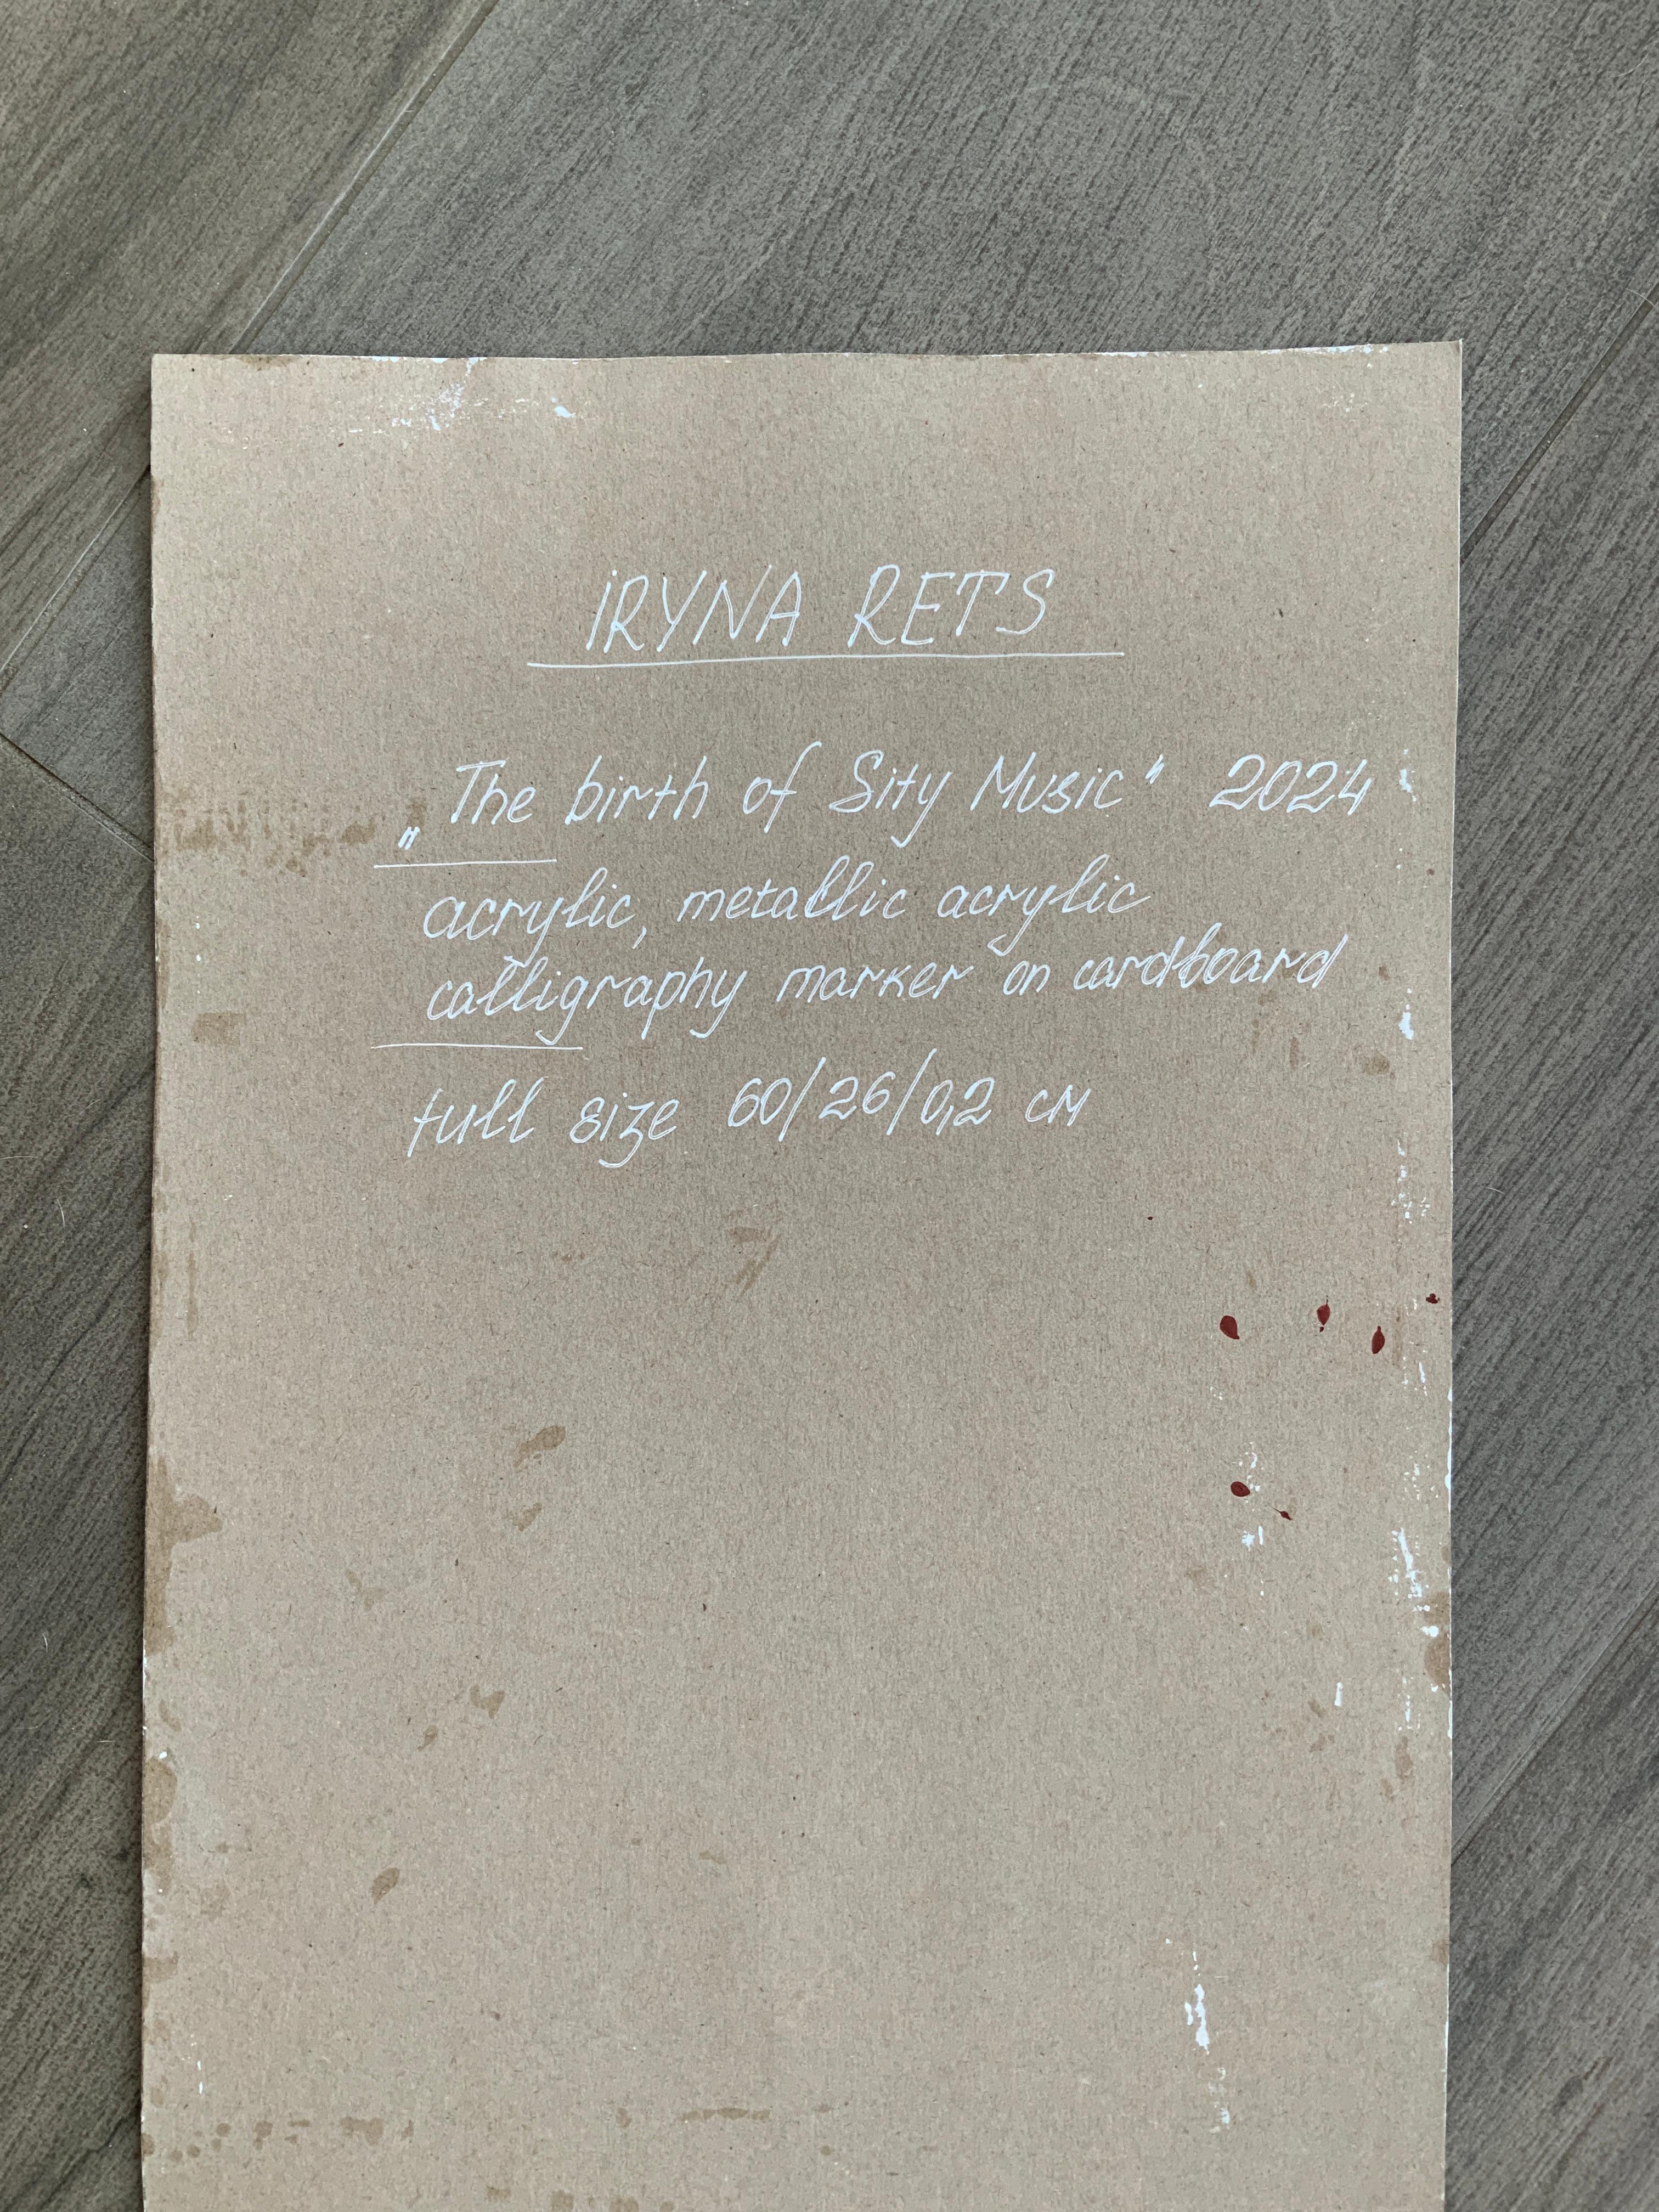 IRYNA RETS
„The birth of Sity Music" 2024
acrylic, metallic acrylic
calligraphy marker on cardboard
full size 60/26/0,2 см